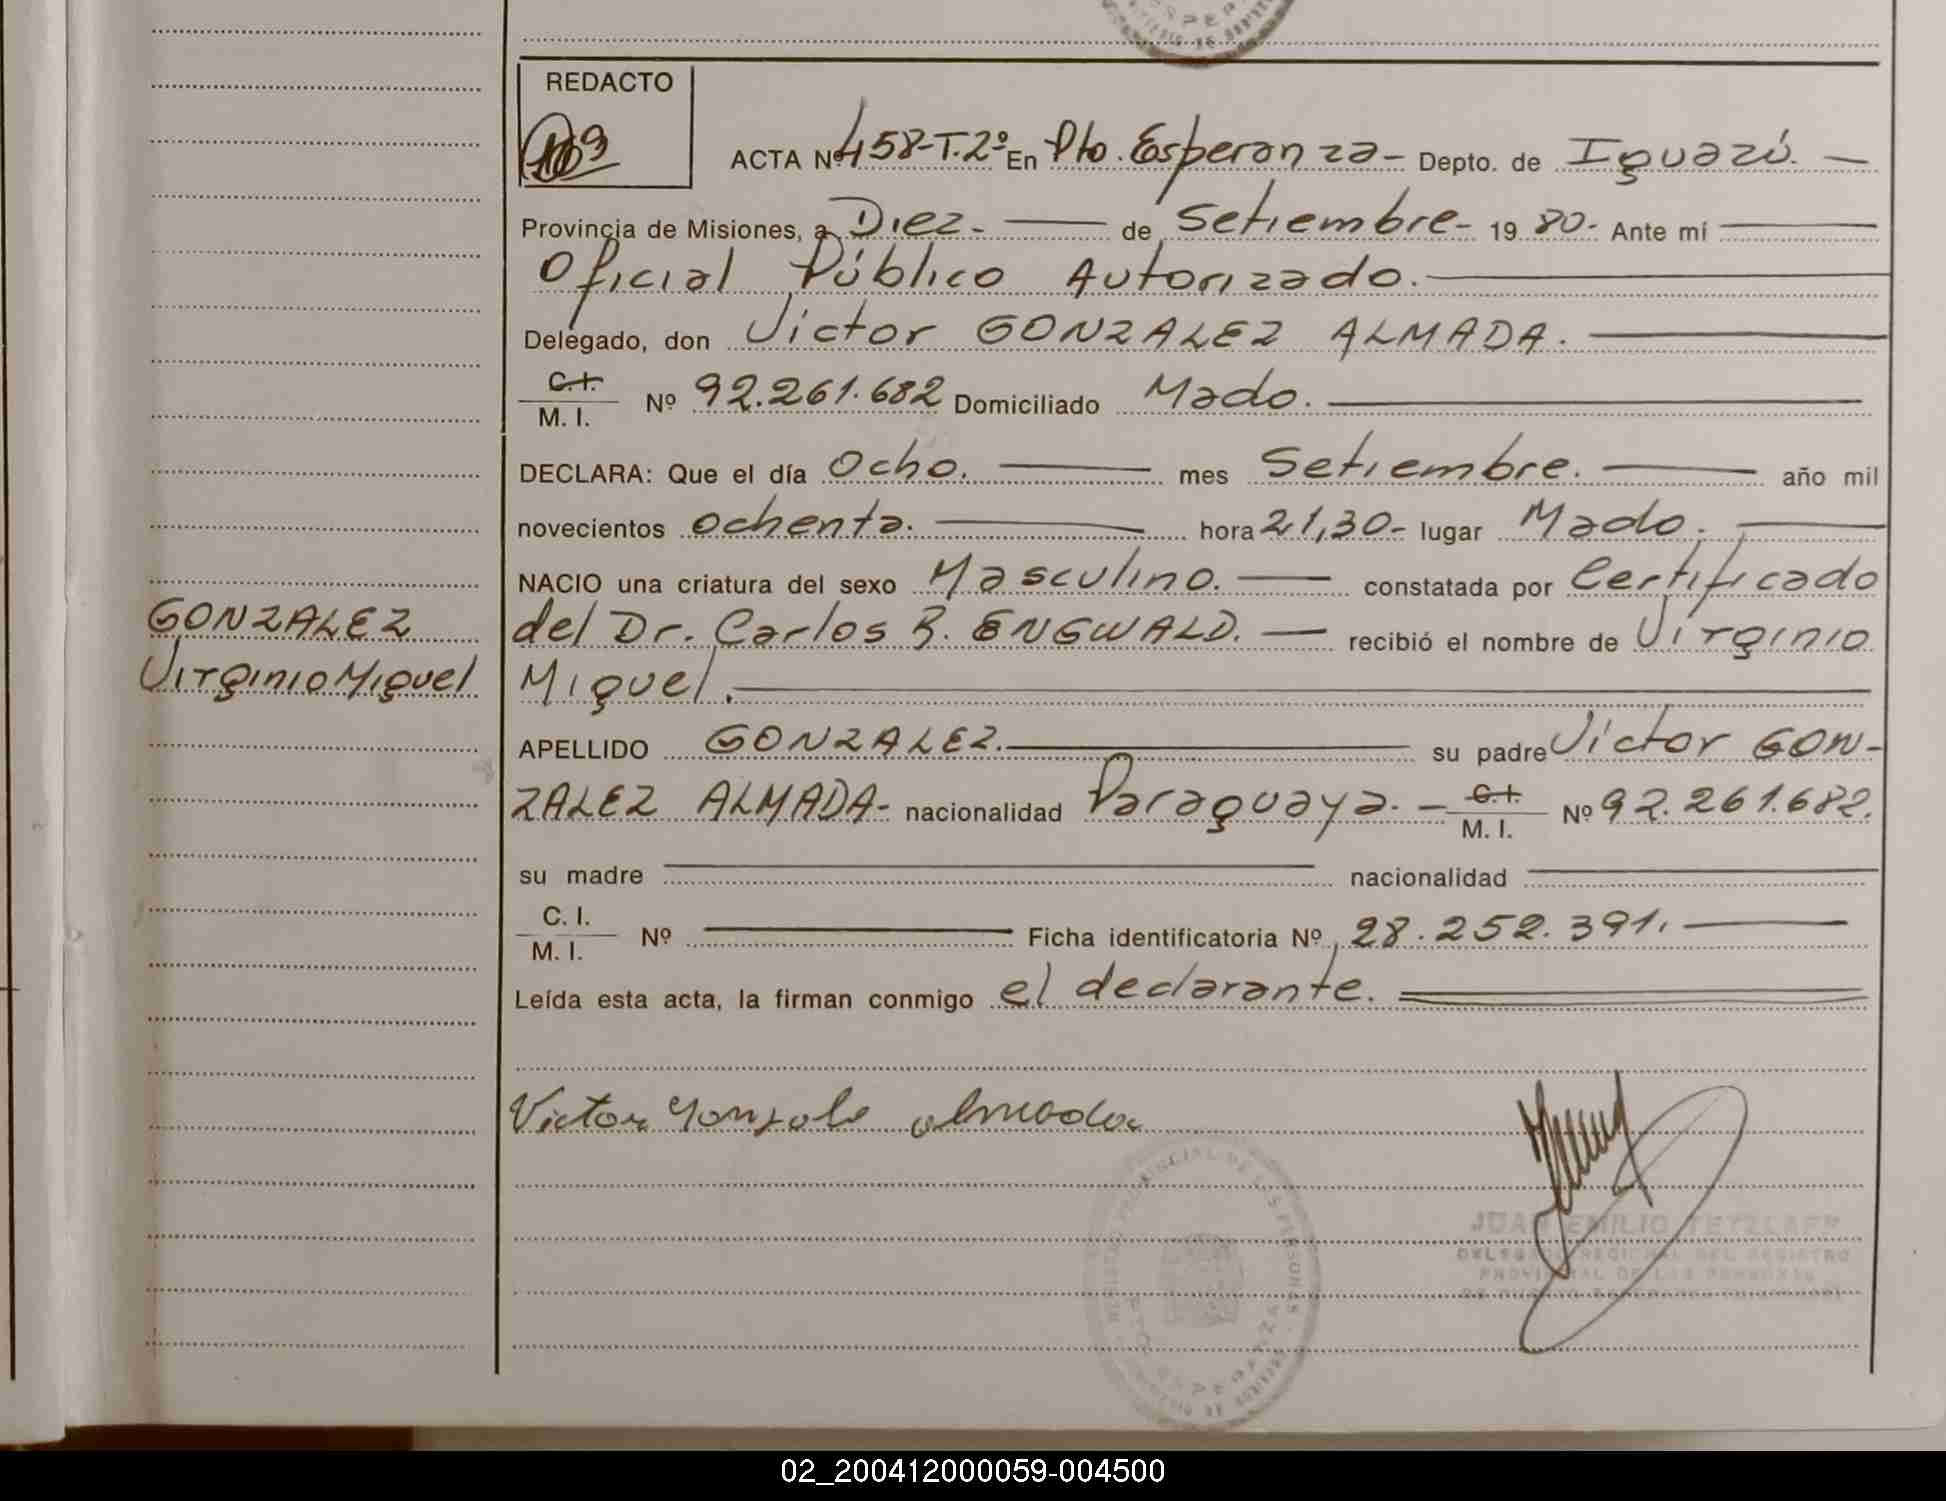 REDACTO
ACTA Nº 458-T.2º En Pto. Esperanza- Depto. de Iguazú.
Provincia de Misiones, a Diez.- de Setiembre- 1980.- Ante mí
Oficial Público Autorizado.
Delegado, don Victor GONZALEZ ALMADA.
C.I. / M. I. Nº 92.261.682 Domiciliado Mado.
DECLARA: Que el día Ocho. mes Setiembre. año mil
novecientos ochenta. hora 21,30.- lugar Mado.
NACIO una criatura del sexo Masculino. constatada por Certificado
GONZALEZ
del Dr. Carlos B. ENGWALD. recibió el nombre de Virginio
Virginio Miguel
Miguel.
APELLIDO GONZALEZ. su padre Victor GON-
ZALEZ ALMADA- nacionalidad Paraguaya. - C.I. / M. I. Nº 92.261.682.
su madre nacionalidad
C. I. / M. I. Nº Ficha identificatoria Nº 28.252.391.
Leída esta acta, la firman conmigo el declarante.
Victor Gonzale almada
REGISTRO PROVINCIAL DE LAS PERSONAS
JUAN EMILIO TETZLAFF
DELEGADO REGIONAL DEL REGISTRO
PROVINCIAL DE LAS PERSONAS
02_200412000059-004500